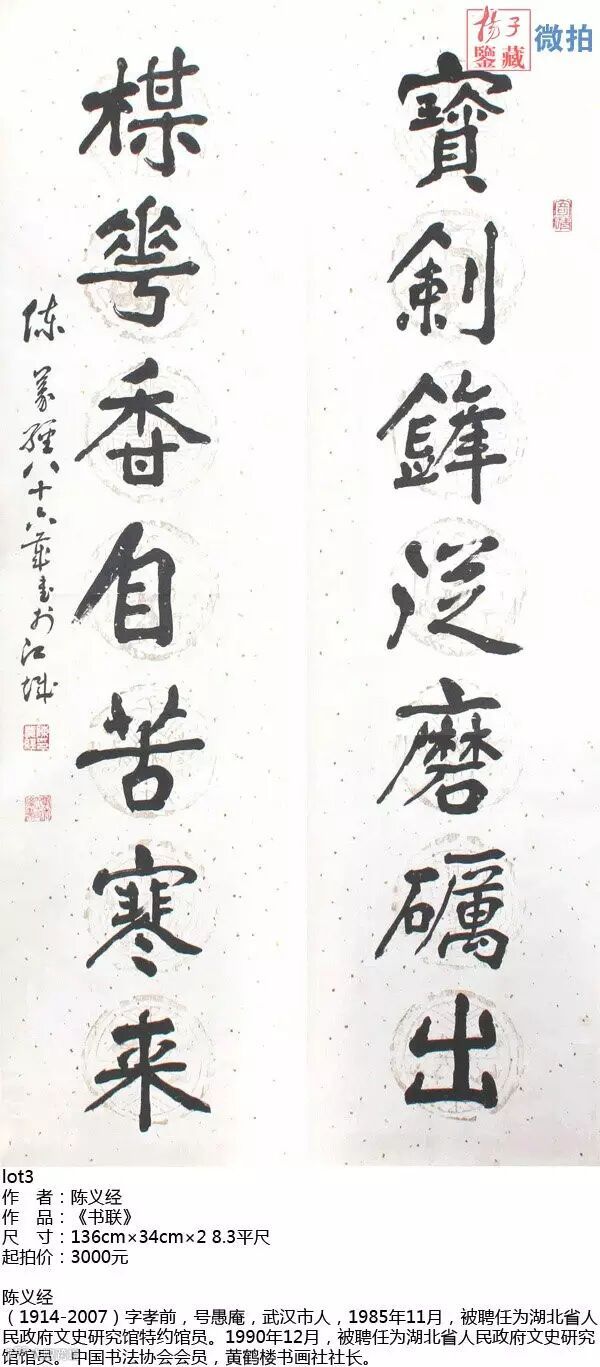 揚子
鑒藏
微拍
寶劍鋒從磨礪出
楳華香自苦寒来
陳義經八十六歲書於江城
lot3
作 者：陈义经
作 品：《书联》
尺 寸：136cm×34cm×2 8.3平尺
起拍价：3000元
陈义经
（1914-2007）字孝前，号愚庵，武汉市人，1985年11月，被聘任为湖北省人
民政府文史研究馆特约馆员。1990年12月，被聘任为湖北省人民政府文史研究
馆馆员。中国书法协会会员，黄鹤楼书画社社长。